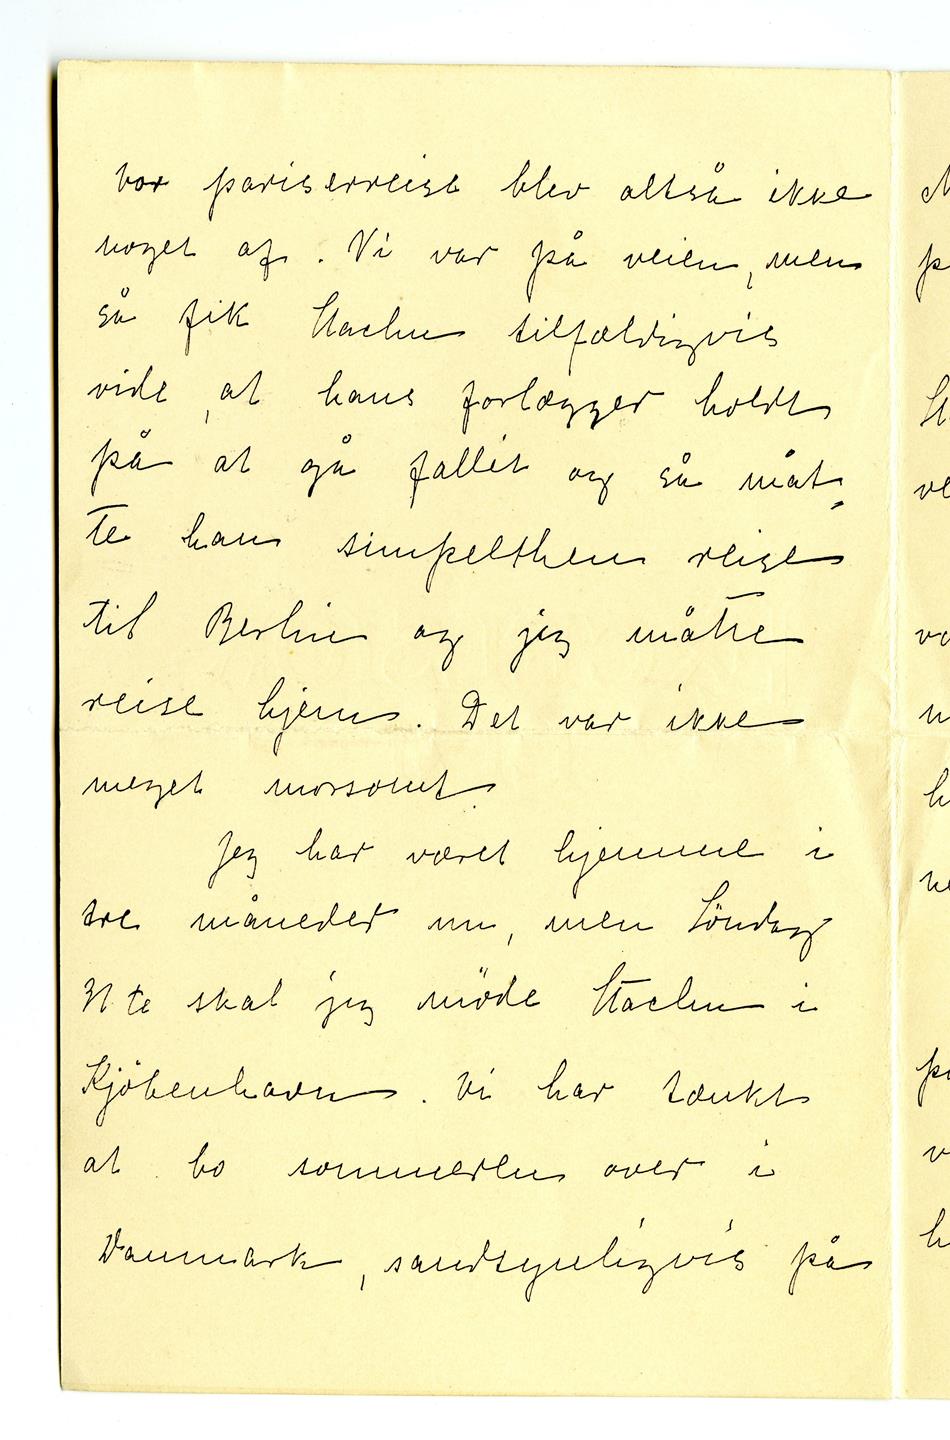 Vor pariserreise blev altså ikke
noget af. Vi var på veien, men
så fik Stachu tilfældigvis
vide, at hans forlægger holdt
på at gå fallit og så måt-
te han simpelthen reise
til Berlin og jeg måtte
reise hjem. Det var ikke
meget morsomt.
Jeg har været hjemme i
tre måneder nu, men Söndag
31te skal jeg möde Stachu i
Kjöbenhavn. Vi har tænkt
at bo sommeren over i
Danmark, sandsynligvis på